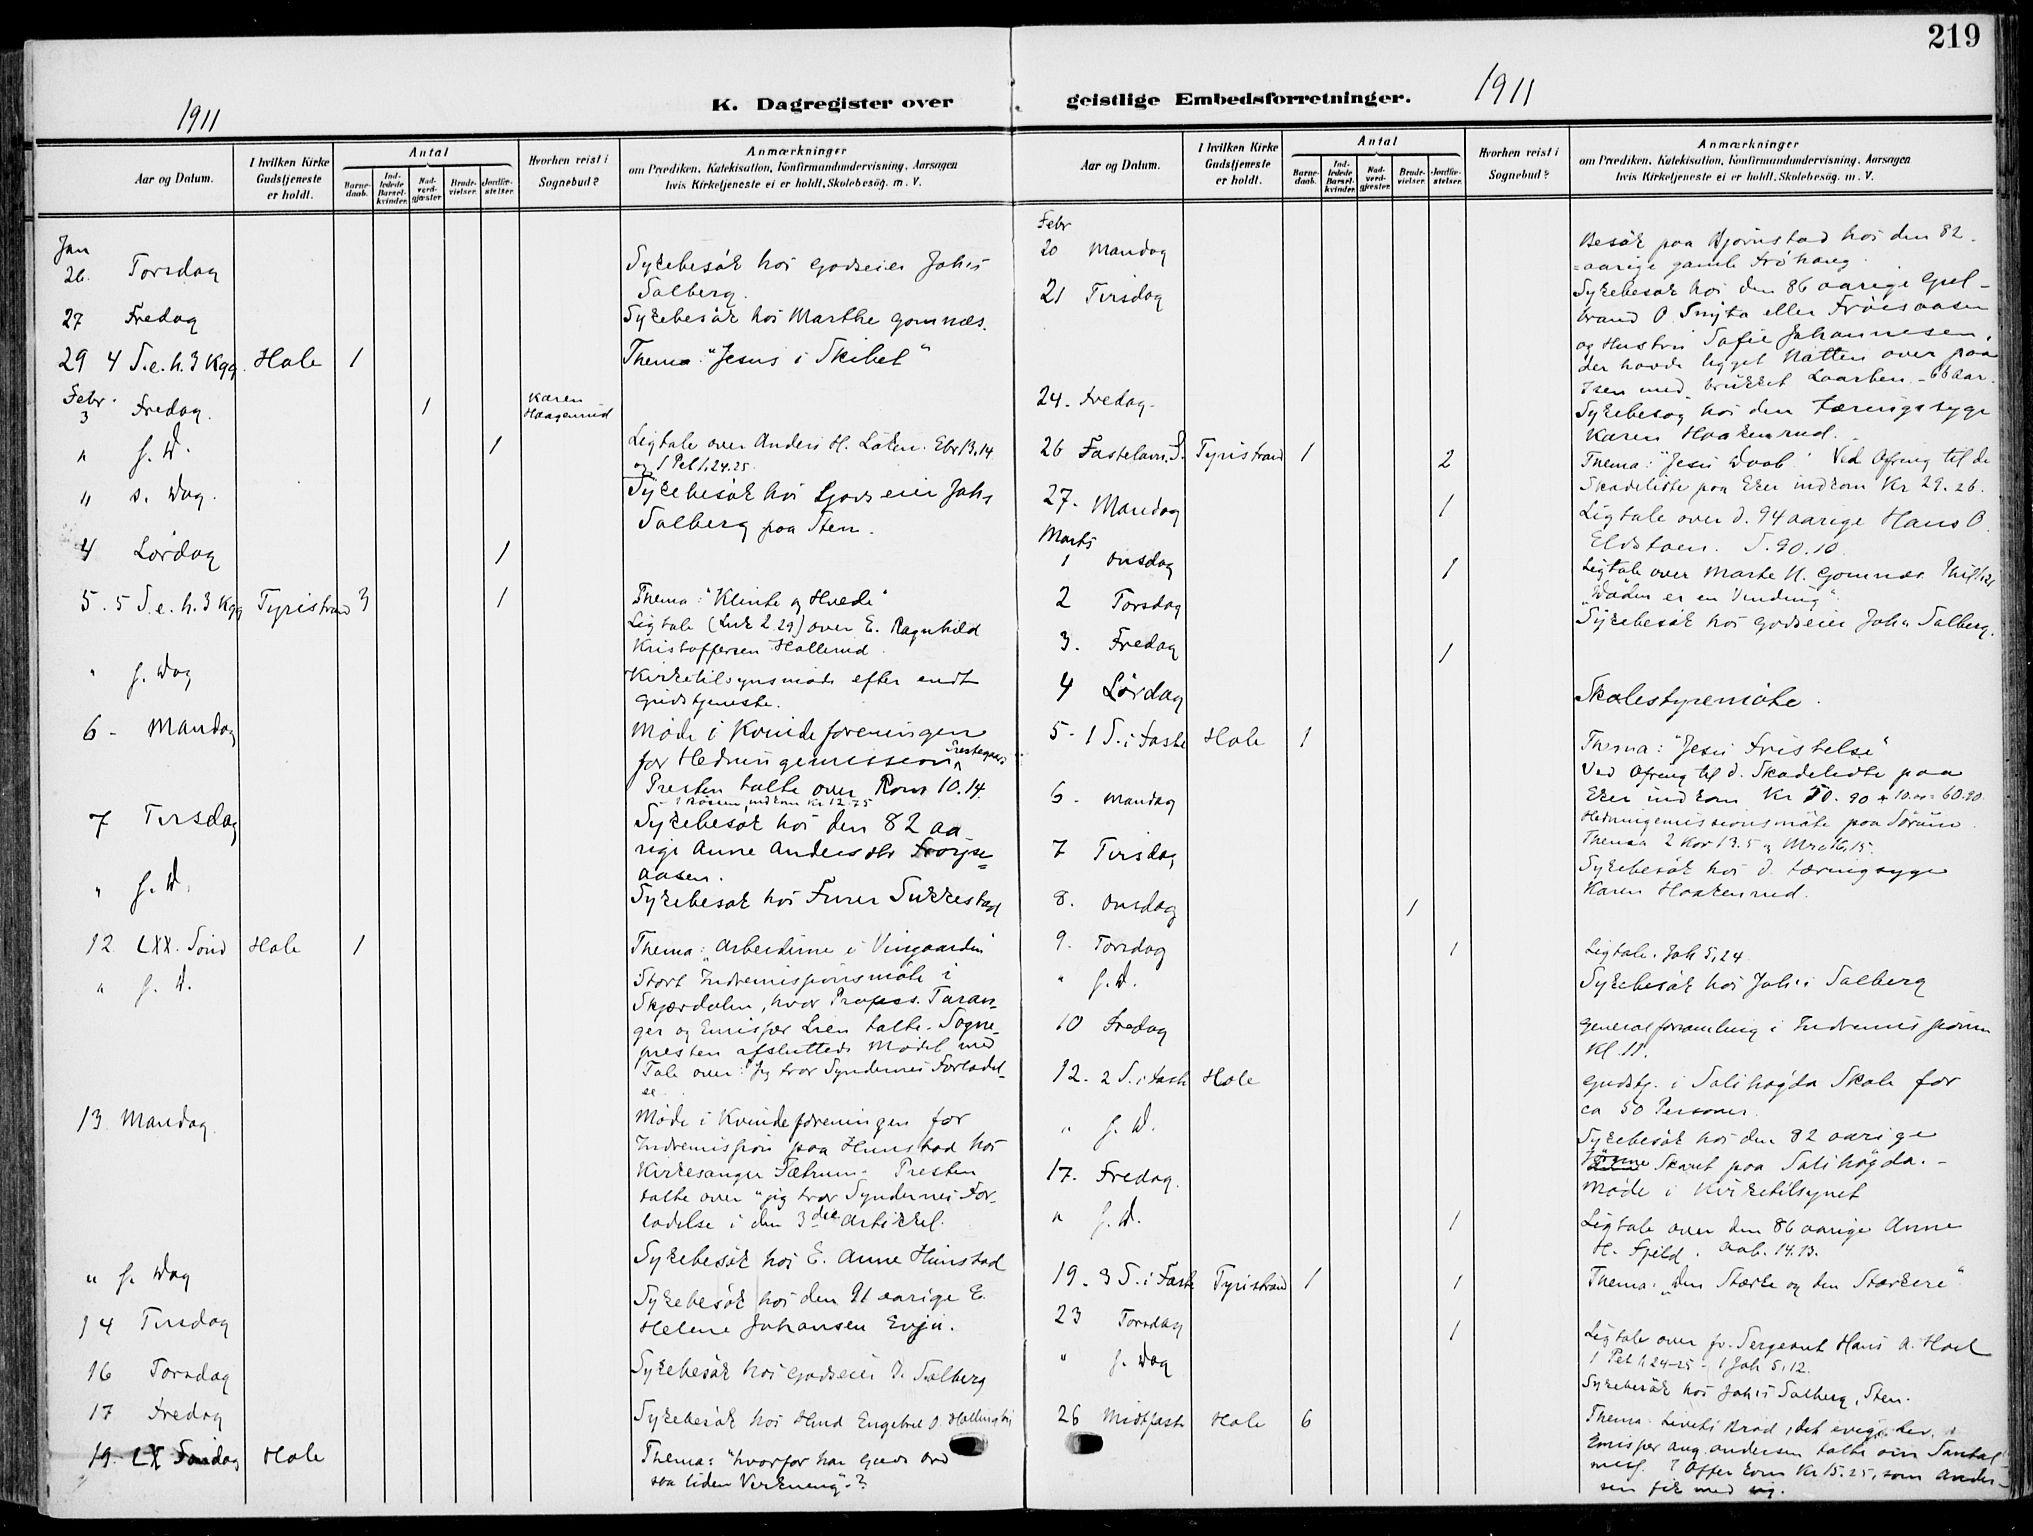 219
1911
K. Dagregister over geistlige Embedsforretninger.
1911
Aar og Datum.
I hvilken Kirke Gudstjeneste er holdt.
Antal
Barne-daab.
Ind-ledede Barsel-kvinder.
Nad-verd-gjæster.
Brude-vielser.
Jordfæ-stelser.
Hvorhen reist i Sognebud?
Anmærkninger
om Prædiken, Katekisation, Konfirmandundervisning, Aarsagen
hvis Kirketjeneste ei er holdt, Skolebesøg, m. V.
Jan
26. Torsdag Sykebesök hos Godseier Johs
Solberg.
27 Fredag Sykebesök hos Marthe Gomnæs.
29 4 S.e.h.3 Kgg. Hole 1 Thema: "Jesus i Skibet"
Febr.
3 Fredag. 1 Karen
Haagenrud
" s. D. 1 Ligtale over Anders H. Löken. Ebr 13.14
og 1 Pet 1.24.25.
" s. Dag. Sykebesök hos Godseier Johs
Solberg paa Sten.
4 Lørdag 1
5. 5 S.e.h.3 Kgg Tyristrand 3 1 Thema: "Klinte og Hvede"
Ligtale (Luk 2 29) over E. Ragnhild
Kristoffersen Hollerud.
" s. Dag Kirketilsynsmøde efter endt
Gudstjeneste.
6 - Mandag Møde i Kvindeforeningen
for Hedningemission
Presten talte over Rom 10.14.
I Bössen indkom Kr 12.75
7 Tirsdag Sykebesök hos den 82 aa
rige Anne Andersdtr
aasen.
" s. D. Sykebesök hos Furer Sukkestad
12 LXX. Sönd Hole 1 Thema: "Arbeiderne i Vingaarden
" s. D. Stort Indremissionsmöte i
Skjærdalen, hvor Profess. Taran-
ger og Emissær Lien talte. Sogne-
presten afsluttede Mødet med
Tale over: "Jeg tror Syndernes Forladel-
se
13 Mandag. Møde i Kvindeforeningen for
Indremission paa Hunstad hos
Kirkesanger Fæhrum. Presten
talte over "jeg tror Syndernes For-
ladelse i den 3die Artikkel.
" s. Dag Sykebesök hos E. Anne Hunstad
14 Tirsdag Sykebesök hos den 91 aarige E.
Helene Johansen Evju.
16 Torsdag Sykebesök hos Godseier J. Solberg
17 Fredag Sykebesök hos Hmd Engebret O
19. LX Søndag Hole Thema: "hvorfor har Guds Ord
saa liden Virkning"?
Aar og Datum.
I hvilken Kirke Gudstjeneste er holdt.
Antal
Barne-daab.
Ind-ledede Barsel-kvinder.
Nad-verd-gjæster.
Brude-vielser.
Jordfæ-stelser.
Hvorhen reist i Sognebud?
Anmærkninger
om Prædiken, Katekisation, Konfirmandundervisning, Aarsagen
hvis Kirketjeneste ei er holdt, Skolebesøg, m. V.
Febr
20 Mandag Besök paa Bjørnstad hos den 82-
=aarige gamle Fröhaug.
21 Tirsdag Sykebesök hos den 86 aarige Gul-
brand O. eller Fröisaasen
og Hustru Sofie Johannesen,
der havde ligget Natten over paa
Isen med brukket Laarben. - 66 Aar.
24. Fredag. Sykebesøg hos den tæringssyge
Karen Haakenrud.
26 Fastelavn. S. Tyristrand 1 2 Thema: "Jesu Daab". Ved Ofring til de
Skadelidte paa Eker indkom Kr 29.26.
27. Mandag 1 Ligtale over d. 94 aarige Hans O.
Eldstøen. S. 90.10.
Marts
1 Onsdag 1 Ligtale over Marte H. Gomnæs. Phil 1.21
"Døden er en Vinding".
2 Torsdag Sykebesök hos Godseier Johs Solberg.
3. Fredag 1
4 Lördag Skolestyremöte.
5. 1 S. i Faste Hole 1 Thema: "Jesu Fristelse"
Ved Ofring til d. Skadelidte paa
Eker indkom Kr 50.90 + 10.00 = 60.90.
6 - Mandag Hedningemissionsmöte paa Sörum.
Thema 2 Kor 13.5 og Mrc 16.15.
7 Tirsdag Sykebesök hos d. tæringsyge
Karen Haakenrud.
8. Onsdag 1
9. Torsdag 1 Ligtale. Joh 5,24
" s. D. Sykebesök hos Johs Solberg
10 Fredag Generalforsamling i Indremissionen
Kl. 11.
12. 2 S. i Faste Hole Gudstj. i Solihøgda Skole for
ca 50 Personer.
" s. D. Sykebesök hos den 82 aarige
Skaret paa Solihøgda. -
17. Fredag. Møde i Kirketilsynet
" s. D. 1 Ligtale over den 86 aarige Anne
H. Fjeld. Aab. 14.13.
19. 3 S. i Faste Tyristrand 1 1 Thema: "den Stærke og den Stærkere"
23 Torsdag 1 Ligtale over fv. Sergeant Hans A. Hoel
1 Pet 1.24-25 - 1 Joh 5.12.
" s. Dag Sykebesök hos Johs Solberg, Sten.
26 Midtfaste Hole 6 Thema: Livets Brød, det
Emissær Aug. Andersen talte om Santal
miss. I Offer kom Kr 15.25, som Ander-
sen fik med sig.